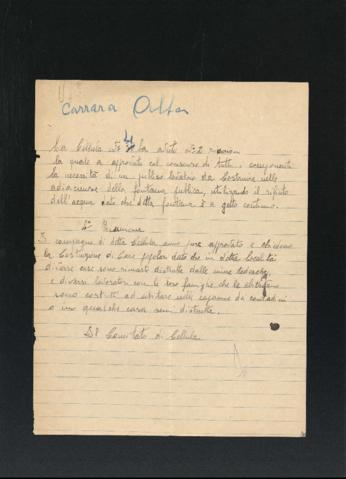 Carrara Alta
La Cellula N° 4 ha avuto N° 2 riunioni
la quale a approvato col consenso di tutti i componenti
la necessità di un publico lavatoio da costruire nelle
adiacenze della fontana publica, utilizando il rifiuto
dell'acqua dato che detta fontana è a getto continuo.
2ª Riunione
I compagni di detta Cellula anno pure approvato e chiedono
la costruzione di case popolari dato che in detta località
diverse case sono rimaste distrutte dalle mine tedesche,
e diversi lavoratori con le loro famiglie che le abitavano
sono costretti ad abitare nelle capanne da contadini
o in qualche casa semi distrutta.
Il Comitato di Cellula